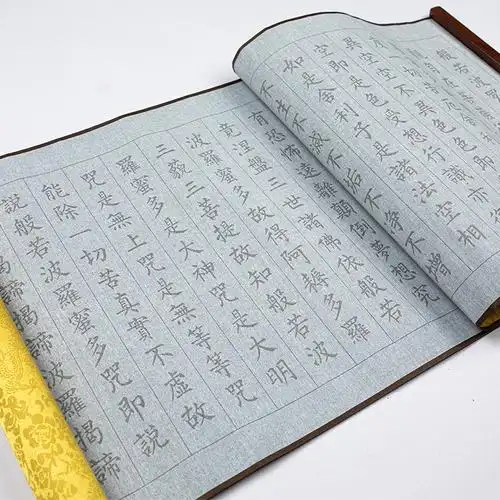 空即是色受想行識亦
如是舍利子是諸法空相
不生不滅不垢不淨不增
有恐怖遠離顛倒夢想究
竟涅盤三世諸佛依般若
波羅蜜多故得阿耨多羅
三藐三菩提故知般若波
羅蜜多是大神咒是大明
咒是無上咒是無等等咒
能除一切苦真實不虛故
說般若波羅蜜多咒即說
揭諦波羅揭諦